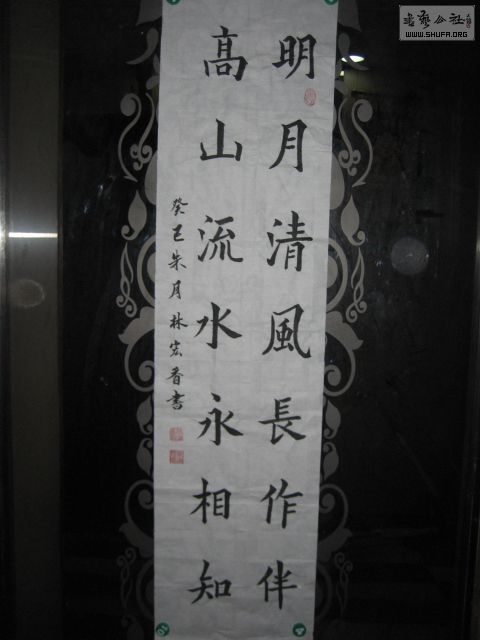 明月清風長作伴
高山流水永相知
癸巳朱月林宏香書
書藝公社
WWW.SHUFA.ORG